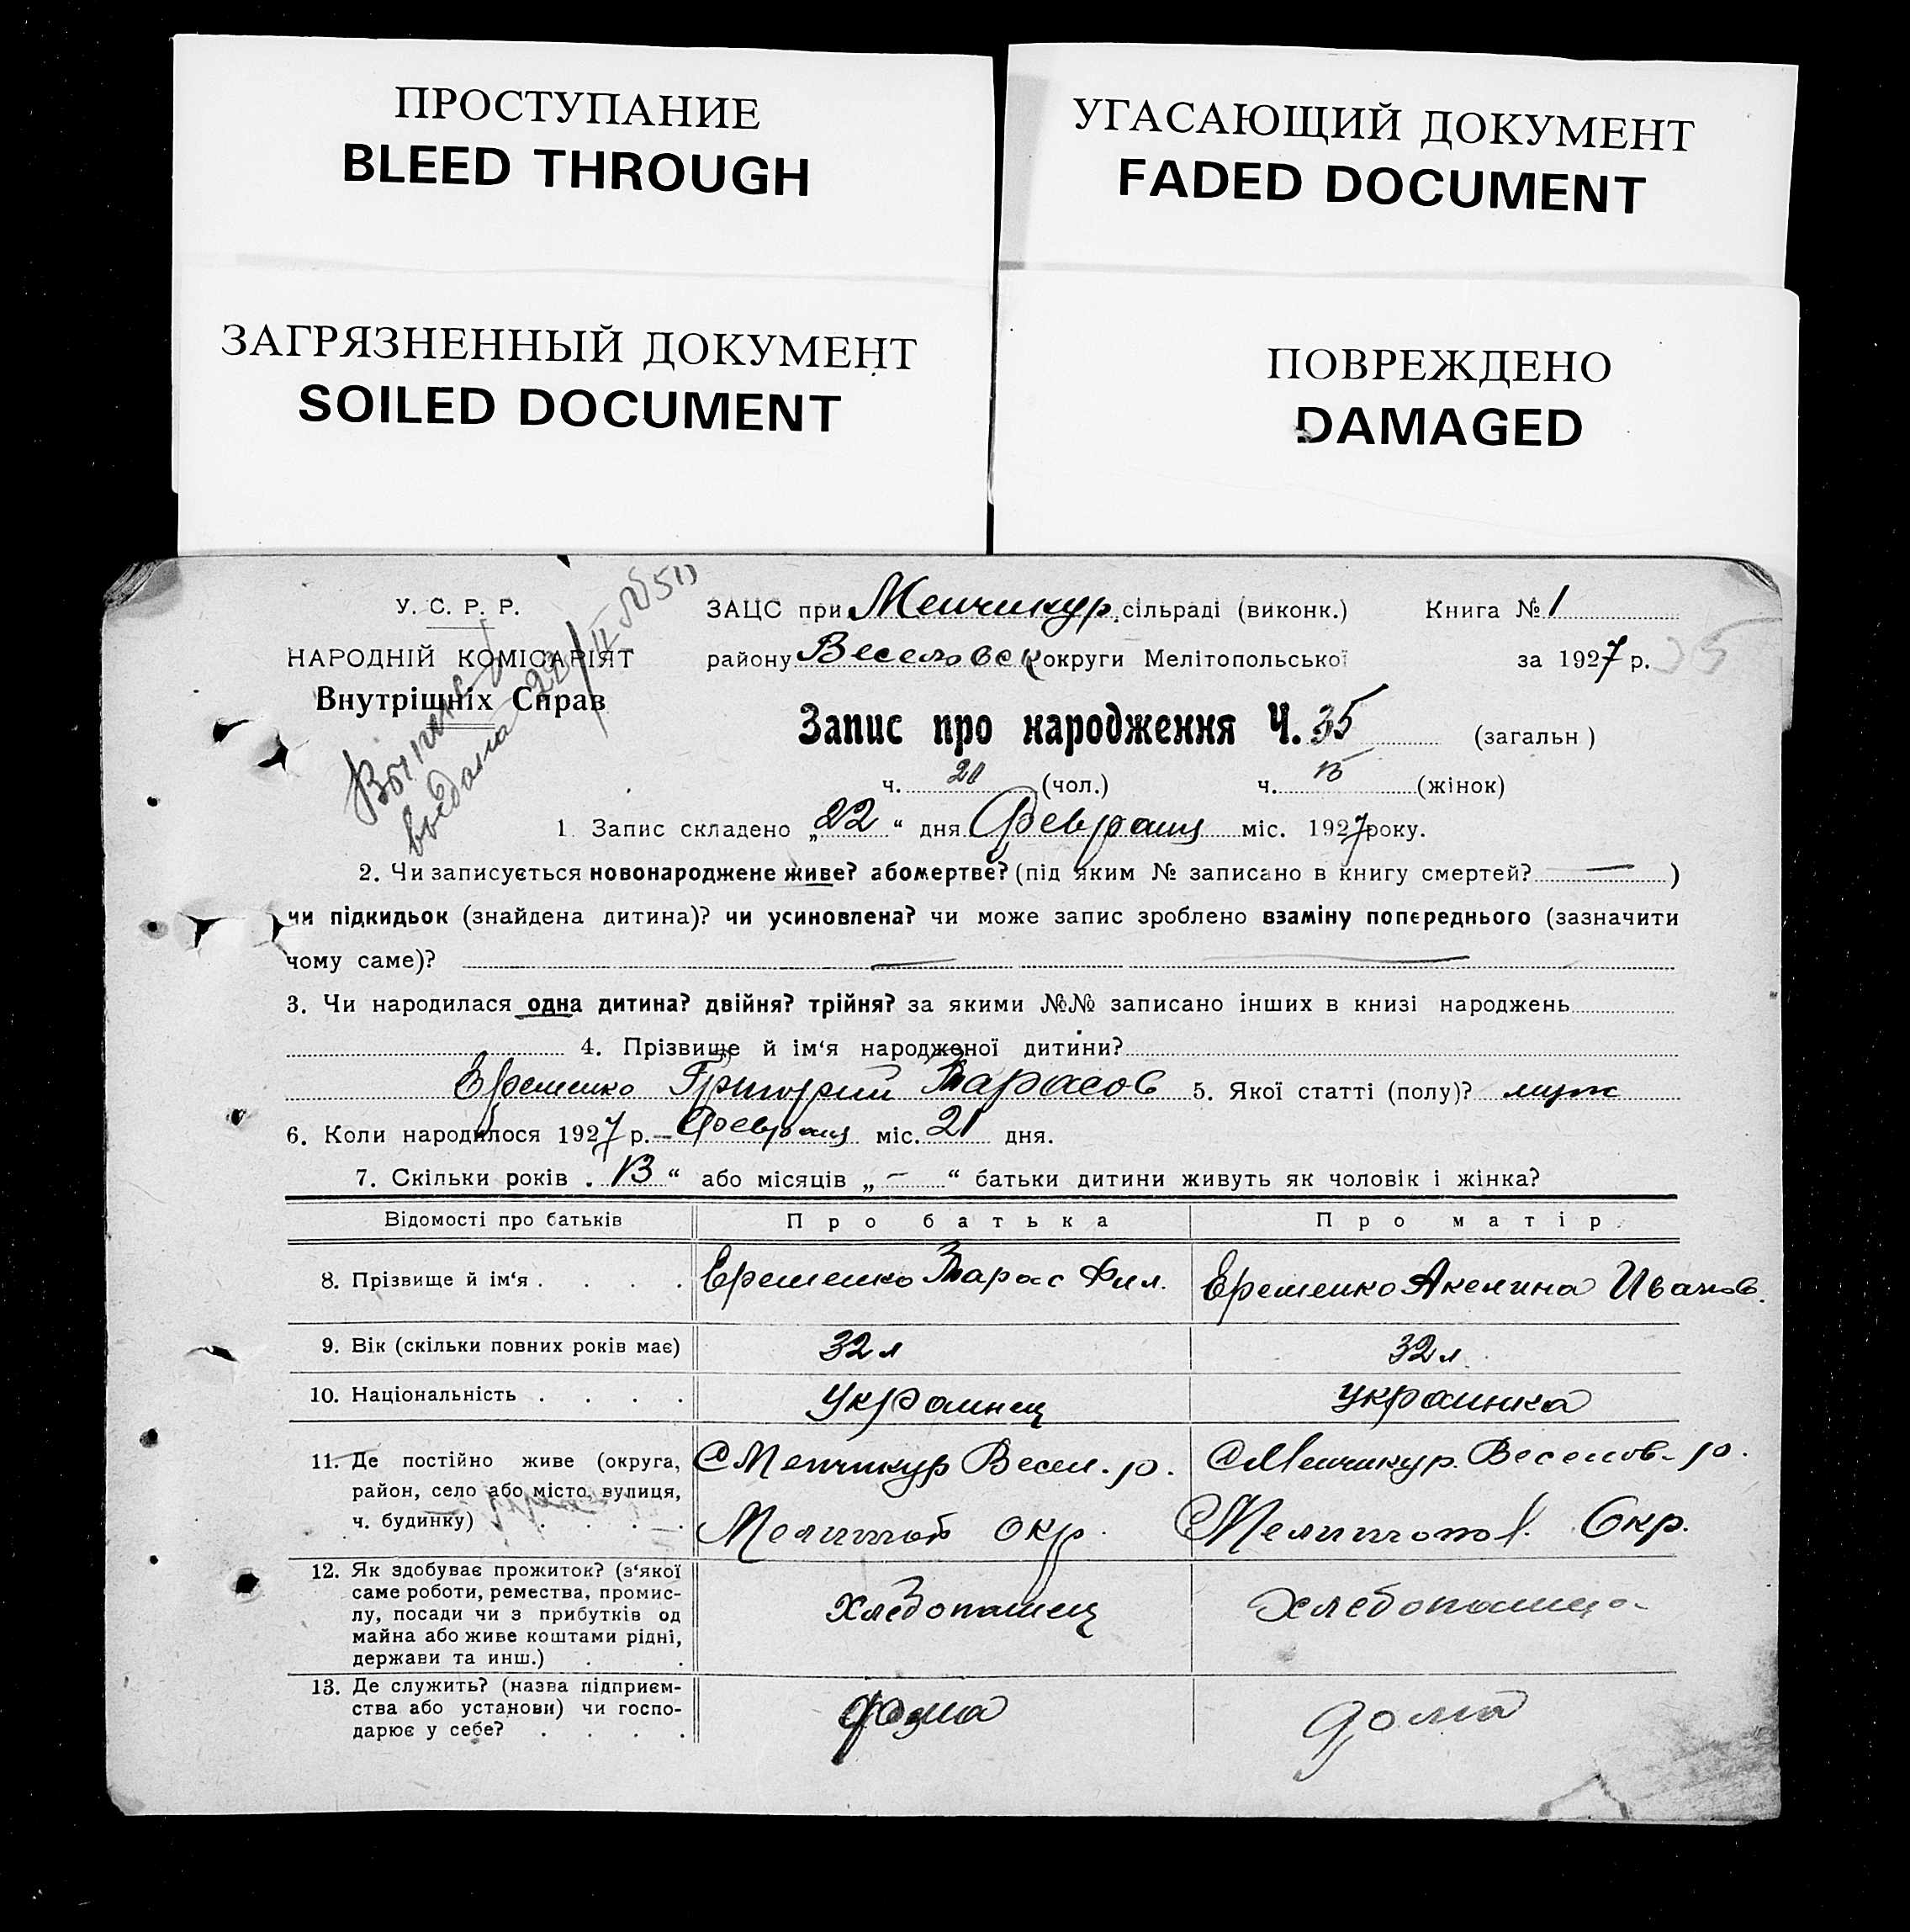 ПРОСТУПАНИЕ
BLEED THROUGH
УГАСАЮЩИЙ ДОКУМЕНТ
FADED DOCUMENT
ЗАГРЯЗНЕННЫЙ ДОКУМЕНТ
SOILED DOCUMENT
ПОВРЕЖДЕНО
DAMAGED
У. С. Р. Р.
НАРОДНІЙ КОМІСАРІЯТ
Внутрішніх Справ
выдана 22/II №50
ЗАЦС при Менчикур. сільраді (виконк.) Книга № 1
району Веселовск округи Мелітопольської за 1927 р. 35
Запис про народження Ч. 35 (загальн)
ч. 20 (чол.) ч. 15 (жінок)
1 Запис складено „22“ дня Февраля міс. 1927 року.
2. Чи записується новонароджене живе? або мертве? (під яким № записано в книгу смертей? — )
чи підкидьок (знайдена дитина)? чи усиновлена? чи може запис зроблено взаміну попереднього (зазначити
чому саме)? — —
3. Чи народилася одна дитина? двійня? трійня? за якими №№ записано інших в книзі народжень
4. Прізвище й ім‘я народженої дитини?
Еременко Григорий Тарасов 5. Якої статті (полу)? муж
6. Коли народилося 1927 р. – Февраля міс. 21 дня.
7. Скільки років „13“ або місяців „—“ батьки дитини живуть як чоловік і жінка?
Відомості про батьків Про батька Про матір
8. Прізвище й ім‘я . . . . Еременко Тарас Фил. Еременко Акелина Иванов.
9. Вік (скільки повних років має) 32 л 32 л.
10. Національність . . . . Украинец украинка
11. Де постійно живе (округа, район, село або місто, вулиця, ч. будинку) . . . .
с Менчикур Весел. р.
Мелитоп окр.
с Менчикур. Веселов. р.
Мелитопол. Окр.
12. Як здобуває прожиток? (з‘якої саме роботи, ремества, промислу, посади чи з прибутків од майна або живе коштами рідні, держави та инш.) . .
Хлебопашец хлебопашца
13. Де служить? (назва підприємства або установи) чи господарює у себе? . . . .
дома дома